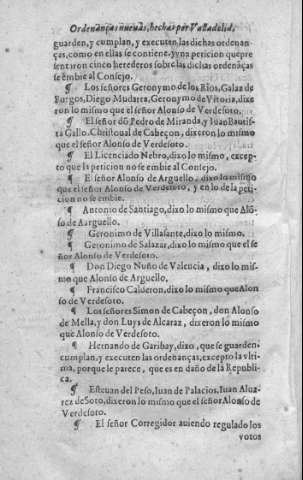 Ordenãças nueuas, hechas por Valladolid,
guarden, y cumplan, y executen las dichas ordenan
ças, como en ellas se contiene, y vna peticion que pre
sentaron cinco herederos sobre las dichas ordenãças
se embie al Consejo.
¶ Los señores Geronymo de los Rios, Galaz de
Burgos, Diego Mudarra, Geronymo de Vitoria, dixe
ron lo mismo que el señor Alonso de Verdesoto.
¶ El señor dõ Pedro de Miranda, y Iuan Bautis-
ta Gallo, Christoual de Cabeçon, dixeron lo mismo
que el señor Alonso de Verdesoto.
¶ El Licenciado Nebro, dixo lo mismo, excep-
to que la peticion no se embie al Consejo.
¶ El señor Alonso de Arguello, dixo lo mismo
que el señor Alonso de Verdesoto, y en lo de la peti-
cion no se embie.
¶ Antonio de Santiago, dixo lo mismo que Alõ-
so de Aarguello.
¶ Geronimo de Villasante, dixo lo mismo.
¶ Geronimo de Salazar, dixo lo mismo que el se
ñor Alonso de Verdesoto.
¶ Don Diego Nuño de Valencia, dixo lo mis-
mo que Alonso de Arguello.
¶ Francisco Calderon, dixo lo mismo que Alon
so de Verdesoto.
¶ Los señores Simon de Cabeçon, don Alonso
de Mella, y don Luys de Alcaraz, dixeron lo mismo
que Alonso de Verdesoto.
¶ Hernando de Garibay, dixo, que se guarden,
cumplan, y executen las ordenanças, excepto la vlti-
ma, porque le parece, que es en daño de la Republi-
ca.
¶ Esteuan del Peso, Iuan de Palacios, Iuan Alua-
rez de Soto, dixeron lo mismo que el señor Alonso de
Verdesoto.
¶ El señor Corregidor auiendo regulado los
votos